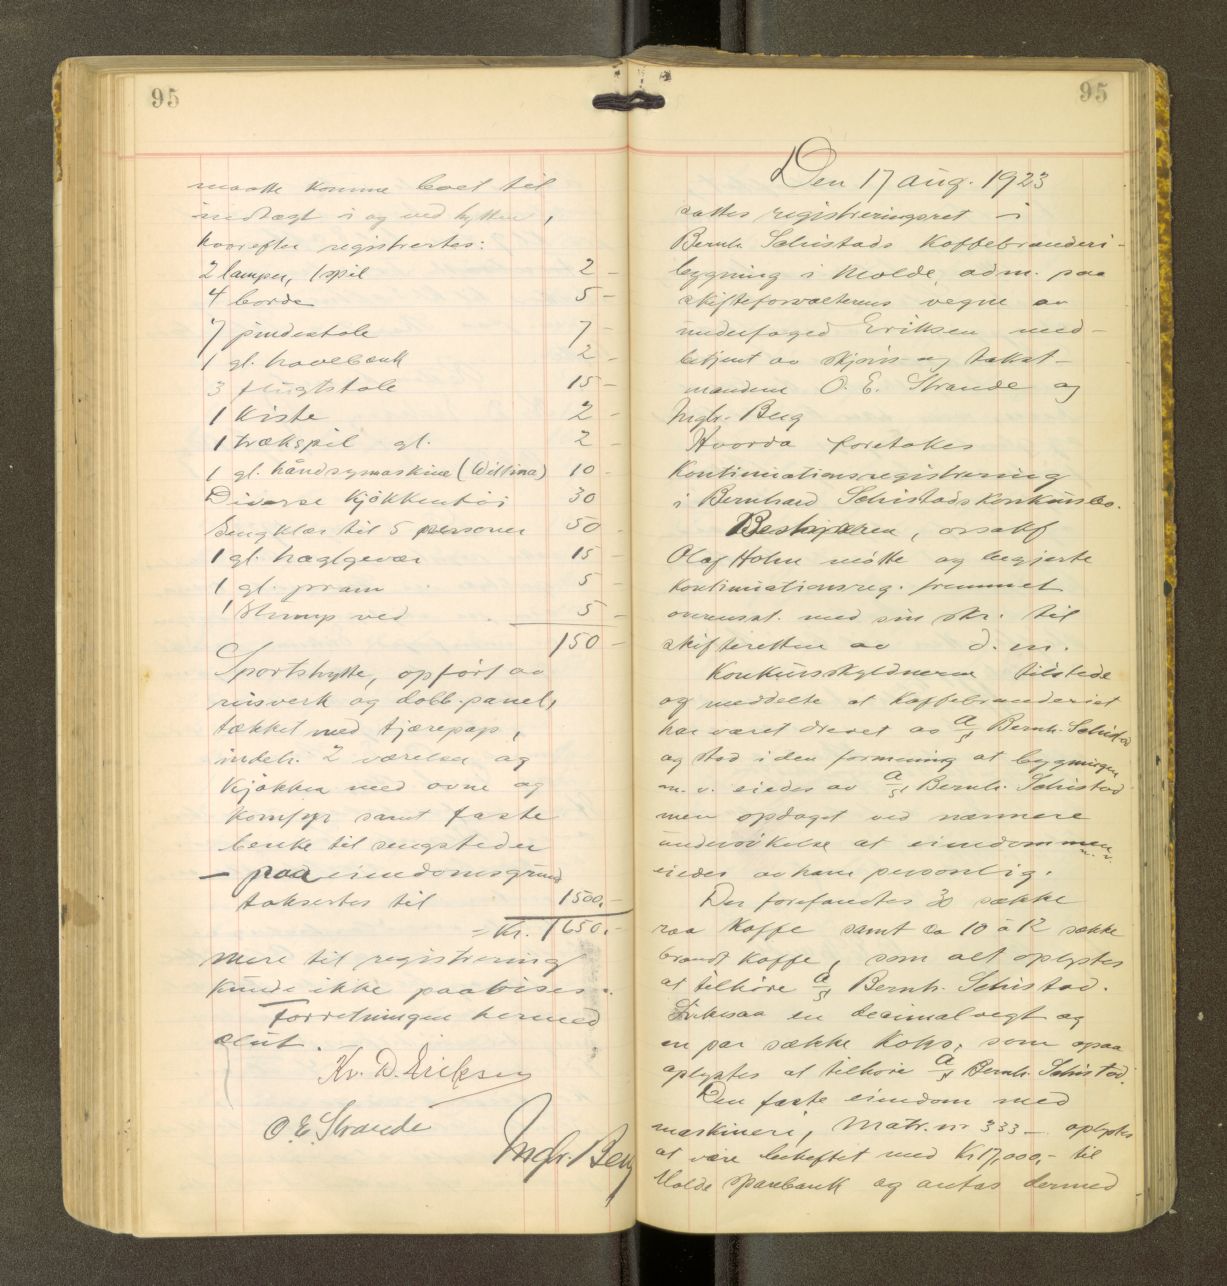 95
maatte komme boet til
indtægt i og ved hytten,
hvorefter registrertes:
2 lamper, 1 spil 2 -
4 borde 5 -
7 pindestole 7 -
1 gl. havebænk 2 -
3 flugtstole 15 -
1 kiste 2 -
1 trækspil gl. 2 -
1 gl. håndsymaskine (Willina) 10 -
Diverse kjøkkentøi 30
Sengklær til 5 personer 50 -
1 gl. haglgevær 15 -
1 gl. pram 5 -
1 slump ved 5 -
150 -
Sportshytte, opført av
reisverk og dobb. panel,
tækket med tjærepap,
indeh. 2 værelser og
kjøkken med ovne og
komfyr samt faste
benke til sengsteder
- paa eiendomsgrund
taksertes til 1500.-
= Kr. 1650.-
Mere til registrering
kunde ikke paavises.
Forretningen hermed
slut.
Kr. D. Eriksen
O. E. Strande
Ingbr. Berg
95
Den 17 aug. 1923
sattes registreringsret i
Bernh. Schistads Kaffebrænderi-
bygning i Molde, adm. paa
skifteforvalterens vegne av
underfoged Eriksen med-
betjent av skjøns- og takst-
mændene O. E. Strande og
Ingbr. Berg
Hvorda foretokes
Kontinuationsregistrering
i Bernhard Schistads konkursbo.
Bestyreren, orsakf
Olaf Holm møtte og begjærte
kontinuationsreg. fremmet
overenst. med sin skr. til
skifteretten av d. m.
Konkursskyldneren tilstede
og meddelte at kaffebrænderiet
har været drevet av A/S Bernh. Schistad
og stod i den formening at bygningen
m. v. eiedes av A/S Bernh. Schistad
men opdaget ved nærmere
undersøkelse at eiendommen m. v.
eiedes av ham personlig.
Der forefandtes 30 sække
raa kaffe samt ca 10 à 12 sække
brændt kaffe, som alt oplystes
at tilhøre A/S Bernh. Schistad.
Likesaa en decimalvegt og
en par sække koks, som ogsaa
oplystes at tilhøre A/S Bernh. Schistad.
Den faste eiendom med
maskineri, Matr. nr 333 - oplystes
at være beheftet med Kr 17,000,- til
Molde sparebank og antas dermed